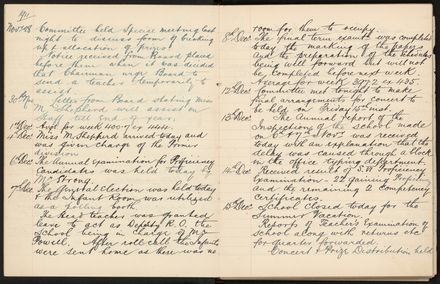 Committee held Special meeting last
night to discuss form of
up & allocation of prizes
before them when it was decided
that Chairman urge Board to
send a teacher temporarily to
assist.
letter from Board stating Miss
M. Sheppard will assist on
Staff till end of year.
1st Dec for week
4th Dec Miss M. Sheppard arrived today and
was given charge of the Primer
division
6th Dec The Annual Examination for Proficiency
Candidates was held today by
Mr Strong.
7th Dec The Hospital Election was held today
& the Infant Room was utilised
as a Polling booth.
The Head teacher was granted
leave to act as Deputy R.O. the
School being in charge of Mr
Powell. After roll call the Infants
were sent home as there was no
room for them to occupy
8th Dec The final term exams was completed
today the marking of the papers
and the preparation of the schedules
being well forward but will not
be completed before next week.
Average for week
12th Dec Committee met tonight to make
final arrangements for Concert to
be held on Friday 15th inst.
13th Dec The Annual Report of the
Inspection of the school made
on was received
today with an explanation that the
delay was caused through a block
in the office typing department.
14th Dec Received result of S.6 Proficiency
Examination. 22 gaining Proficiency
and the remaining 2 Competency
Certificates.
15th Dec School Closed today for the
Summer Vacation.
Reports of Teacher's Examination of
School along with returns etc
for quarter forwarded.
Concert & Prize Distribution held